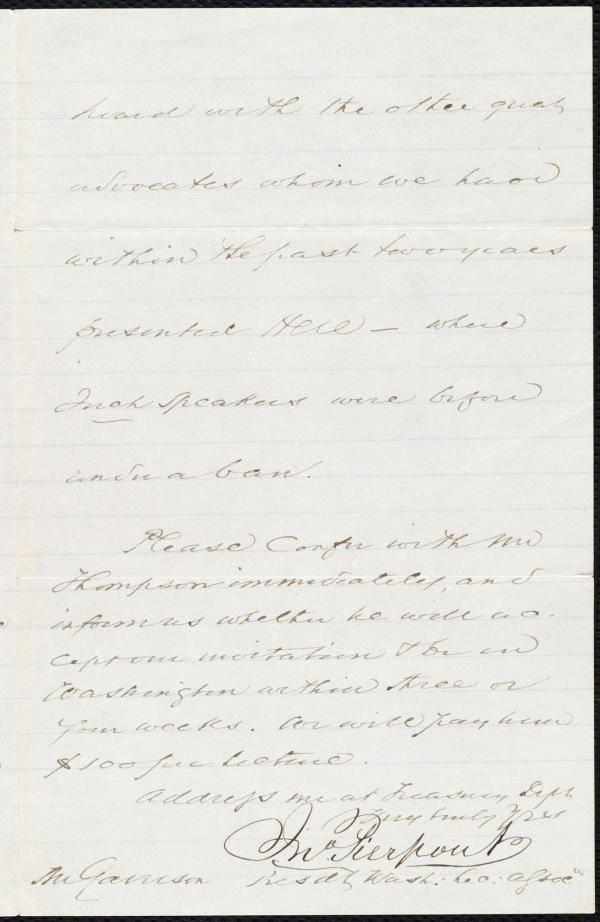 heard with the other great
advocates whom we have
within the past two years
presented Here — where
Such speakers were before
under a ban.
Please Confer with Mr
Thompson immediately, and
inform us whether he will ac-
cept our invitation & be in
Washington within three or
four weeks. We will pay him
$100 per Lecture.
Address me at Treasury Dept
Very truly Yrs
Jno Pierpont
Mr Garrison Presdt Wash: Lec: Assocn